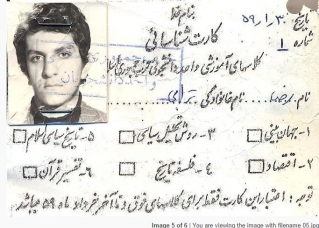 بنام خدا
تاریخ ۵۹/۳/۱
کارت شناسائی
شماره 1
کلاسهای آموزشی واحد دانشجوئی
نام خانوادگی
۱- جهان بینی ۳- روش تحلیل سیاسی ۵- تاریخ سیاسی اسلام
۲- اقتصاد ۴- فلسفه تاریخ ۶- تفسیر قرآن
توجه : اعتبار این کارت فقط برای کلاسهای فوق و تا آخر خرداد ماه ۵۹ میباشد
Image 5 of 6 | You are viewing the image with filename 05.jpg